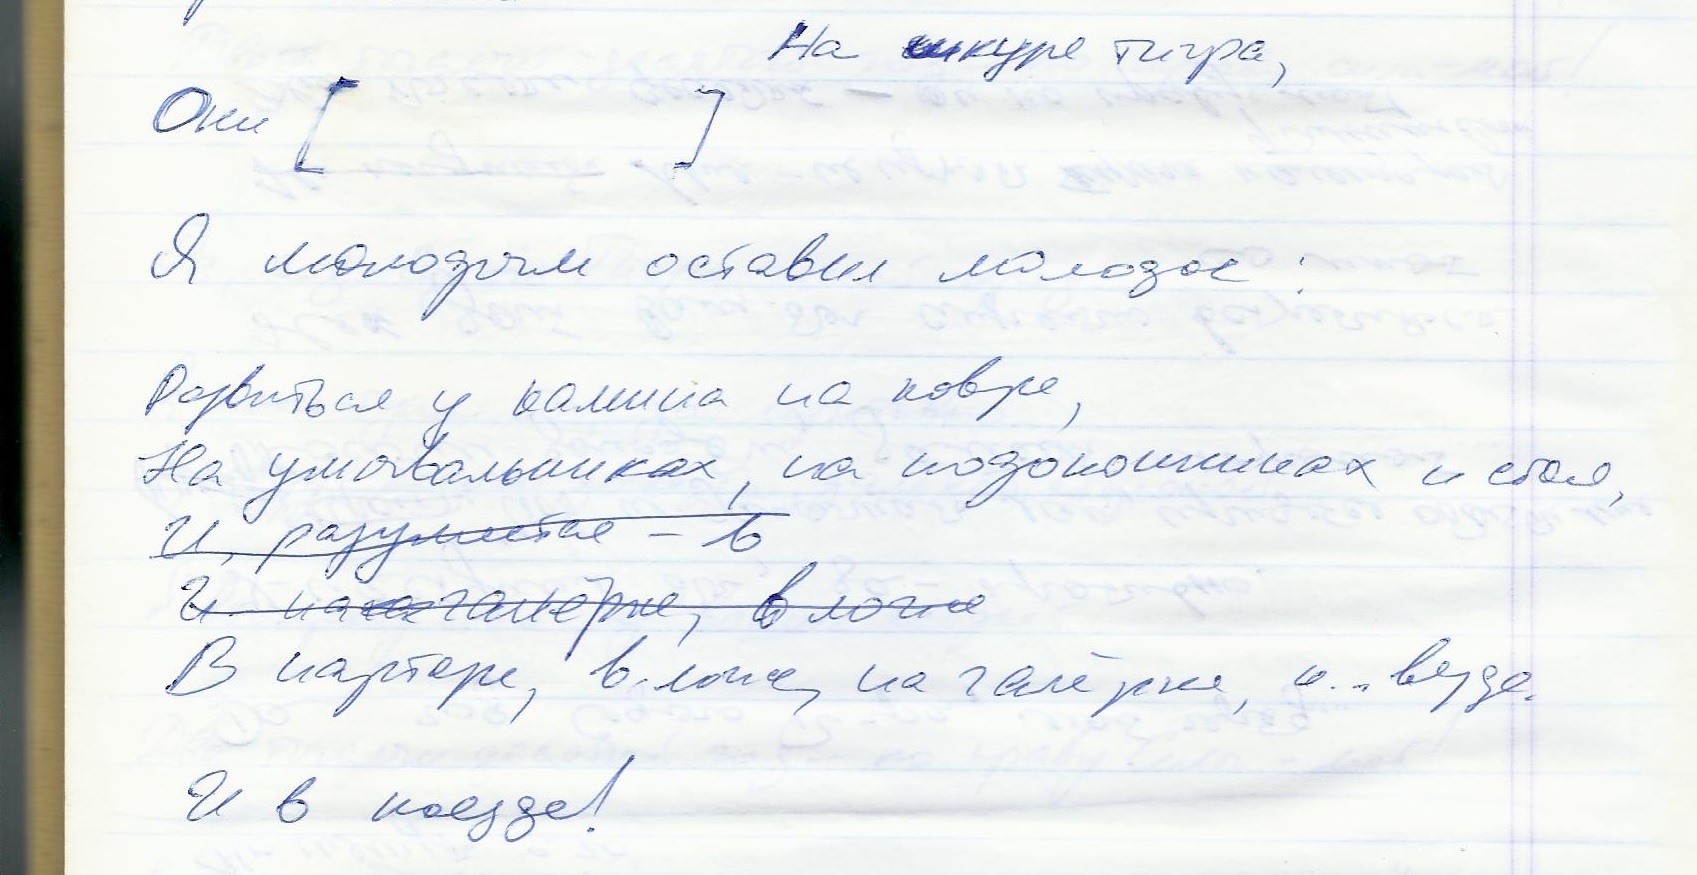 На шкуре тигра,
Они [ ]
Я молодым оставил молодое:
Развиться у камина на ковре,
На умывальниках, на подоконниках и
И, разумеется – в
И на галёрке, в ложе
В партере, в ложе, на галёрке, и... везде.
И в поезде!